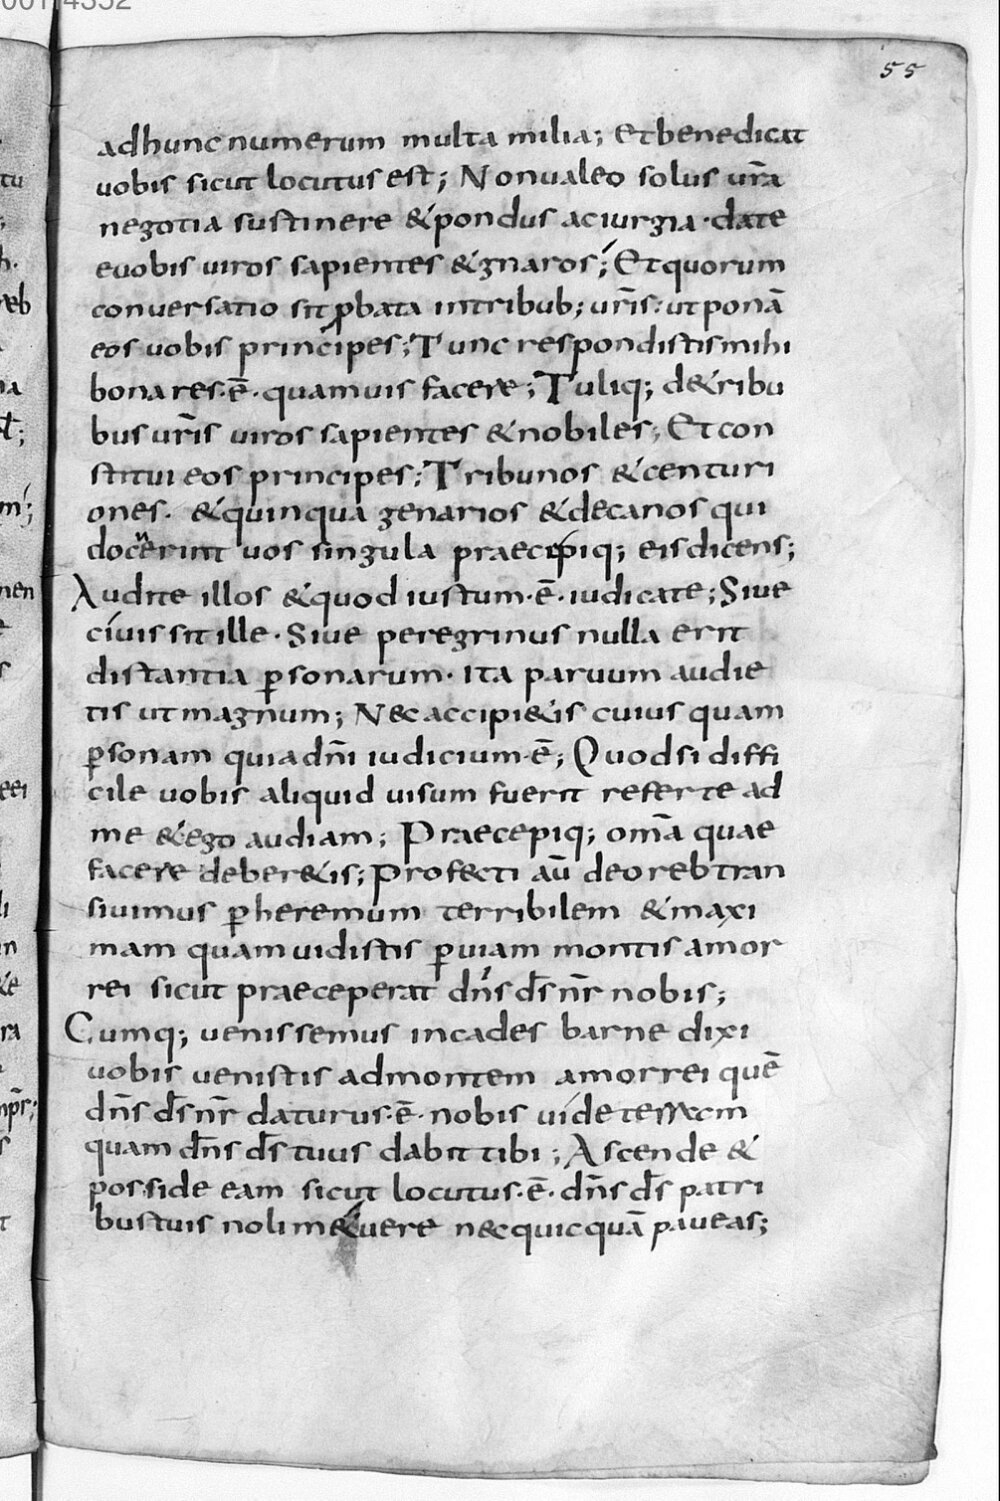 55
adhunc numerum multa milia; Et benedicat
uobis sicut locutus est; Non ualeo solus ur̄a
negotia sustinere & pondus ac iurgia · date
e uobis uiros sapientes & gnaros; Et quorum
conuersatio sit ꝓbata in tribub; ur̄is: ut ponā
eos uobis principes; Tunc respondistis mihi
bona res · ē · quam uis facere; Tuliq; de tribu
bus ur̄is uiros sapientes & nobiles; Et con
stitui eos principes; Tribunos & centuri
ones · & quinquagenarios & decanos qui
docerent uos singula praecepiq; eis dicens;
Audite illos & quod iustum · ē · iudicate; Siue
ciuis sit ille · Siue peregrinus nulla erit
distantia ꝑsonarum · ita paruum audie
tis ut magnum; Nec accipi&is cuius quam
ꝑsonam quia dn̄i iudicium · ē; Quod si diffi
cile uobis aliquid uisum fuerit referte ad
me & ego audiam; Praecepiq; om̄a quae
facere deber&is; Profecti aū de oreb tran
siuimus ꝑ heremum terribilem & maxi
mam quam uidistis ꝑ uiam montis amor
rei sicut praeceperat dn̄s ds̄ nr̄ nobis;
Cumq; uenissemus in cades barne dixi
uobis uenistis ad montem amorrei quē
dn̄s ds̄ nr̄ daturus · ē · nobis uide terram
quam dn̄s ds̄ tuus dabit tibi; Ascende &
posside eam sicut locutus · ē · dn̄s ds̄ patri
bus tuis noli m&uere nec quicquā paueas;